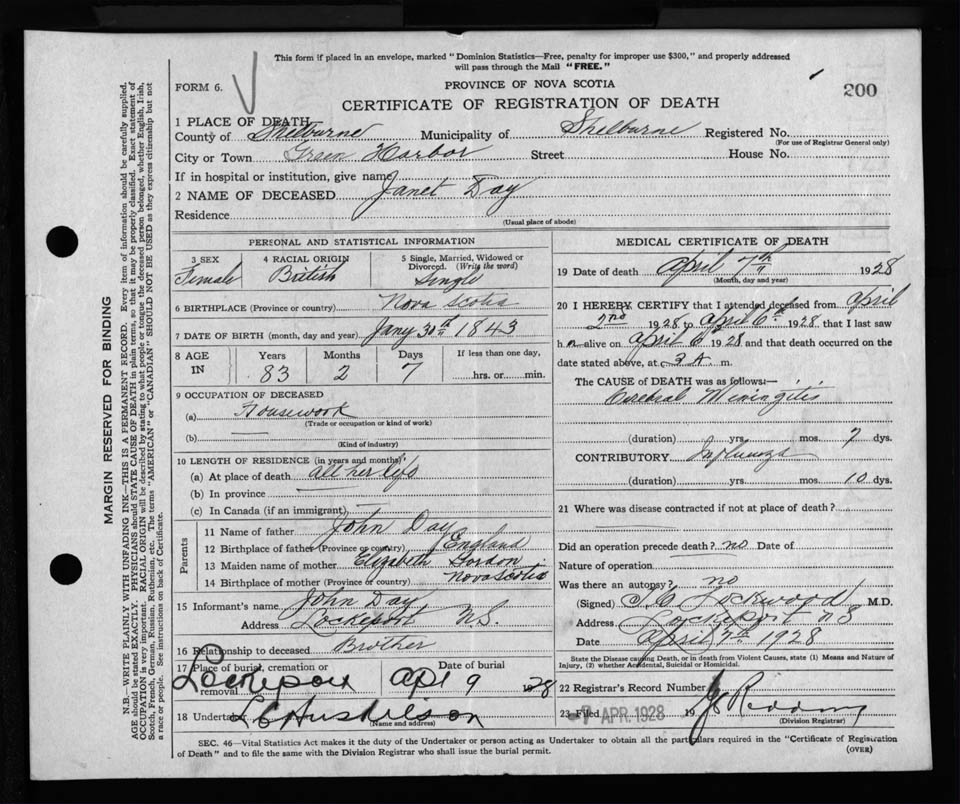 This form if placed in an envelope, marked "Dominion Statistics—Free, penalty for improper use $300," and properly addressed
will pass through the Mail "FREE."
FORM 6.
PROVINCE OF NOVA SCOTIA
200
CERTIFICATE OF REGISTRATION OF DEATH
1 PLACE OF DEATH
County of Shelburne Municipality of Shelburne Registered No.
(For use of Registrar General only)
City or Town Green Harbor Street House No.
If in hospital or institution, give name
2 NAME OF DECEASED Janet Day
Residence
(Usual place of abode)
PERSONAL AND STATISTICAL INFORMATION
3 SEX
Female
4 RACIAL ORIGIN
British
5 Single, Married, Widowed or
Divorced. (Write the word)
Single
6 BIRTHPLACE (Province or country) Nova Scotia
7 DATE OF BIRTH (month, day and year) Jany 30th 1843
8 AGE IN
Years Months Days If less than one day,
83 2 7 hrs. or min.
9 OCCUPATION OF DECEASED
(a) Housework
(Trade or occupation or kind of work)
(b)
(Kind of industry)
10 LENGTH OF RESIDENCE (in years and months)
(a) At place of death all her life
(b) In province
(c) In Canada (if an immigrant)
Parents
11 Name of father John Day
12 Birthplace of father (Province or country) England
13 Maiden name of mother Elizabeth Gordon
14 Birthplace of mother (Province or country) Nova Scotia
15 Informant's name John Day
Address Lockeport N.S.
16 Relationship to deceased Brother
17 Place of burial, cremation or removal Lockeport
Date of burial
Apl 9 1928
18 Undertaker
(Name and address)
MEDICAL CERTIFICATE OF DEATH
19 Date of death April 7th 1928
(Month, day and year)
20 I HEREBY CERTIFY that I attended deceased from April
2nd 1928 to April 6th 1928 that I last saw
h er alive on April 6 1928 and that death occurred on the
date stated above, at 3 A. m.
The CAUSE of DEATH was as follows:—
Cerebral Meningitis
(duration) yrs. mos. 7 dys.
CONTRIBUTORY Influenza
(duration) yrs. mos. 10 dys.
21 Where was disease contracted if not at place of death?
Did an operation precede death? no Date of
Nature of operation
Was there an autopsy? no
(Signed) Lockwood M.D.
Address Lockeport N S
Date April 7th 1928
State the Disease causing Death, or in death from Violent Causes, state (1) Means and Nature of
Injury, (2) whether Accidental, Suicidal or Homicidal.
22 Registrar's Record Number
23 Filed -7 APR. 1928 19 Redding
(Division Registrar)
SEC. 46—Vital Statistics Act makes it the duty of the Undertaker or person acting as Undertaker to obtain all the particulars required in the "Certificate of Registration
of Death" and to file the same with the Division Registrar who shall issue the burial permit.
(OVER)
MARGIN RESERVED FOR BINDING
N.B.—WRITE PLAINLY WITH UNFADING INK—THIS IS A PERMANENT RECORD. Every item of information should be carefully supplied.
AGE should be stated EXACTLY. PHYSICIANS should STATE CAUSE OF DEATH in plain terms, so that it may be properly classified. Exact statement of
OCCUPATION is very important. RACIAL ORIGIN will be described by stating to what people or tongue the deceased person belonged, whether English, Irish,
Scotch, French, German, Russian, Ruthenian, etc. The terms "AMERICAN" or "CANADIAN" SHOULD NOT BE USED as they express citizenship but not
a race or people. See instructions on back of Certificate.